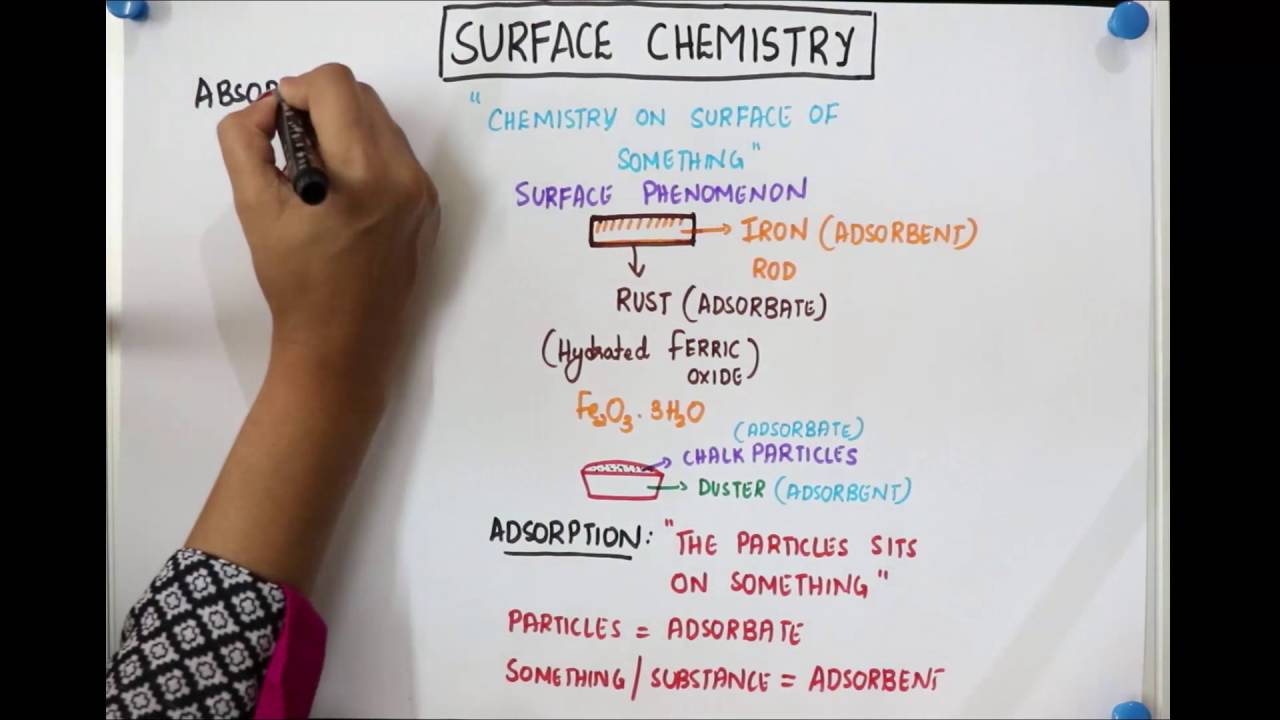 SURFACE CHEMISTRY
ABSOR
"CHEMISTRY ON SURFACE OF
SOMETHING"
SURFACE PHENOMENON
IRON (ADSORBENT)
ROD
RUST (ADSORBATE)
(Hydrated FERRIC
OXIDE)
Fe₂O₃.3H₂O
(ADSORBATE)
CHALK PARTICLES
DUSTER (ADSORBENT)
ADSORPTION: "THE PARTICLES SITS
ON SOMETHING"
PARTICLES = ADSORBATE
SOMETHING/SUBSTANCE = ADSORBENT